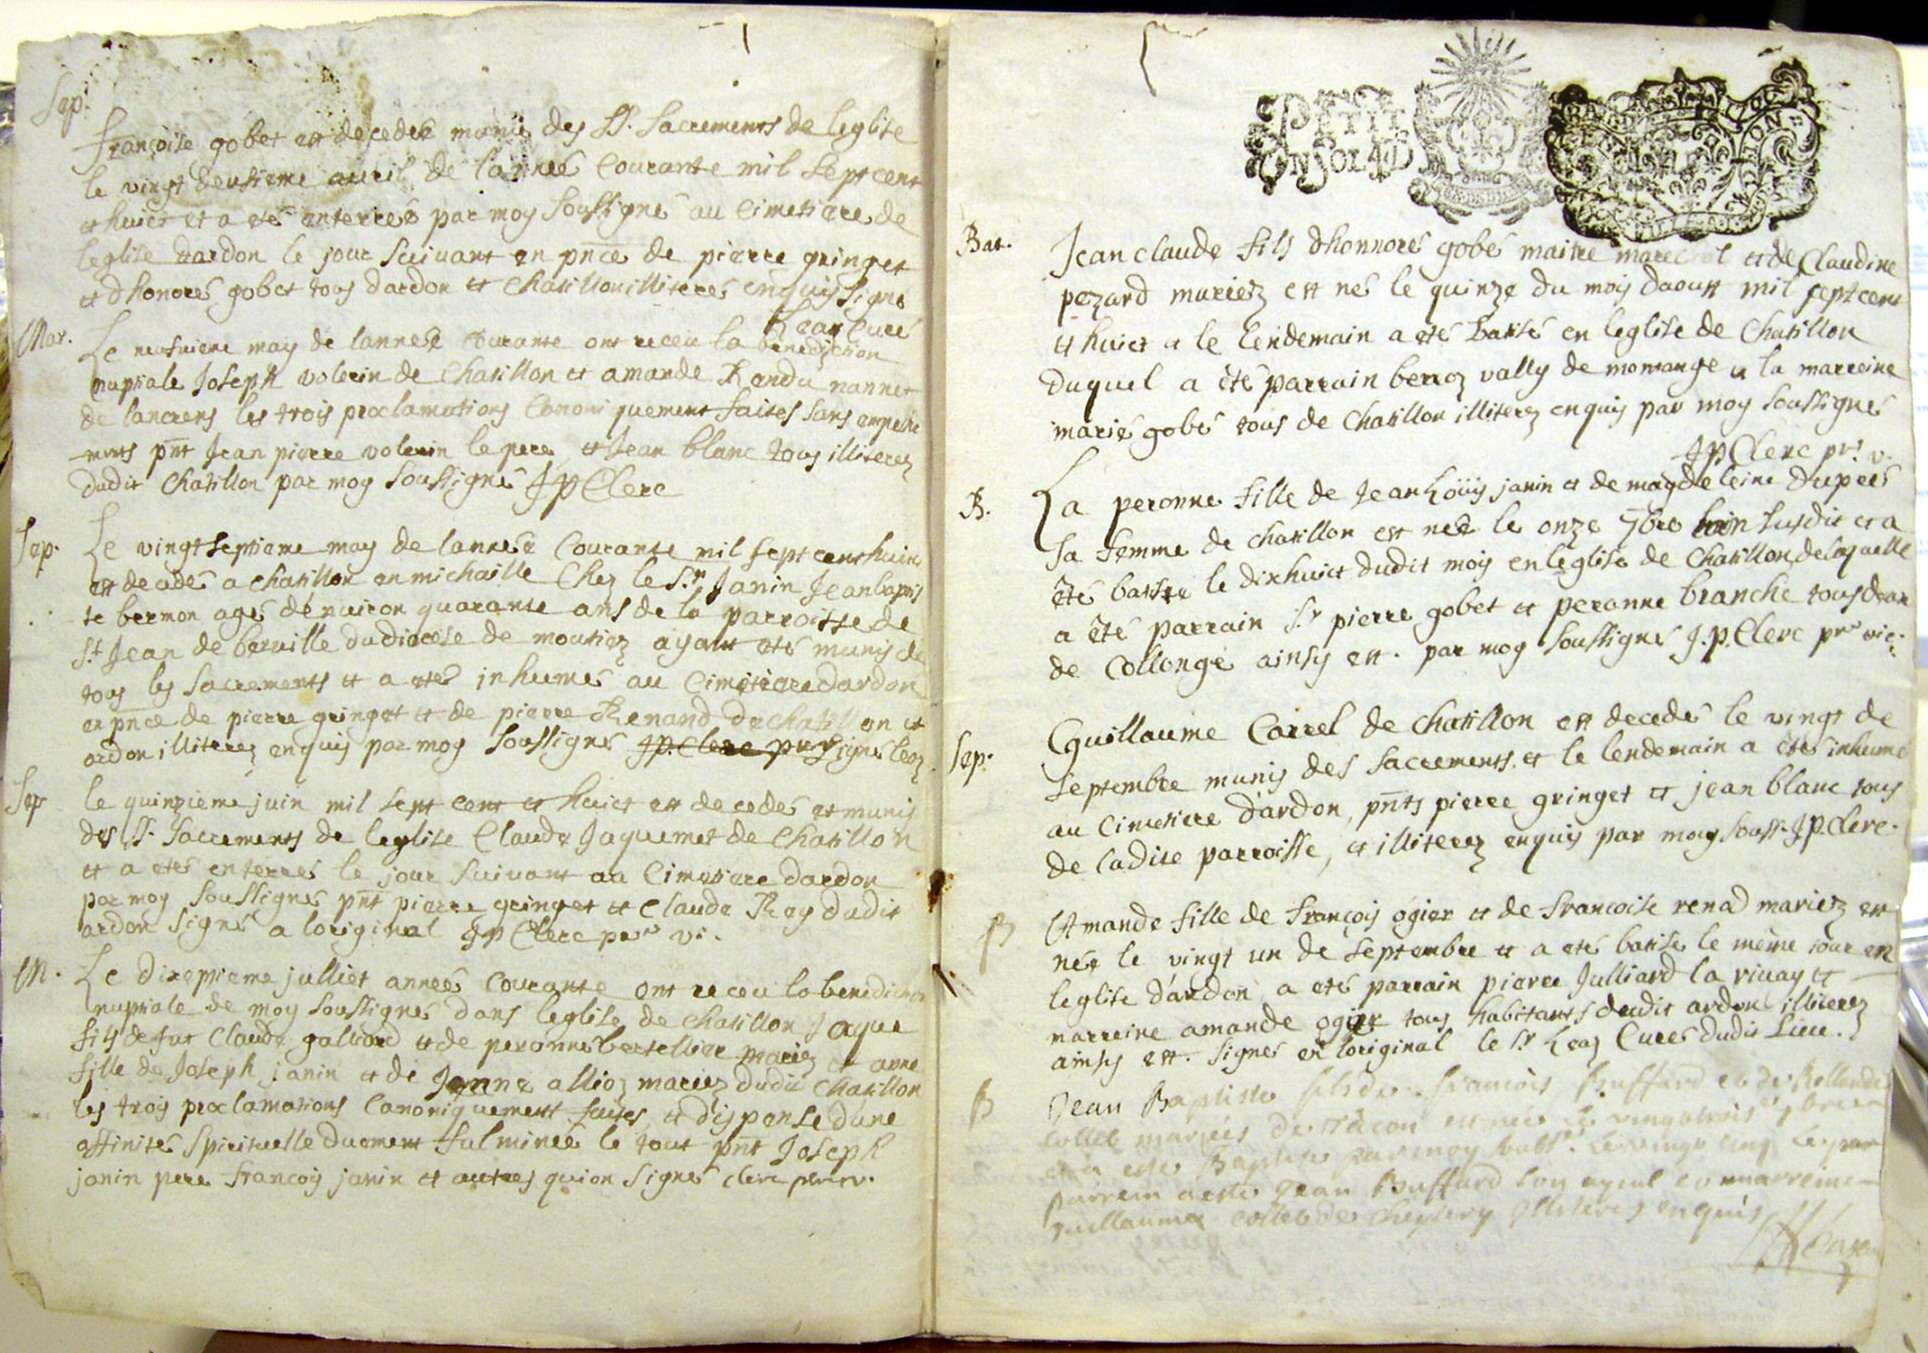 Sep.
françoise gobet est decedee munie des SS. Sacrements de leglise
le vingt deusieme auril de lannee Courante mil sept cent
et huict et a eté enterreé par moy soussigné au Cimetiere de
leglise dardon le jour suiuant en pnce de pierre gringet
et dhonoré gobet tous dardon et Chatillon illiteres enquis signé
Leaz Curé
Mar.
Le neufuieme may de lanneé Courante ont receu la benediction
nuptiale Joseph volerin de Chatillon et amande Rendu nannet
de lancrens les trois proclamations Canoniquement faites sans empeche
ments pnt Jean pierre volerin le pere et Jean blanc tous illiterez
dudit Chatillon par moy soussigné JP Clerc
Sep.
Le vingt septieme may de lanneé Courante mil sept cent huict
est decedé a chatillon en michaille Chez le Sr Janin Jean baptis
te bermon agé denuiron quarante ans de la parroisse de
St Jean de beruille du diocese de moutiez ayant eté munis de
tous les sacrements et a eté inhumé au Cimetiere dardon
en pnce de pierre gringet et de pierre Renand de chatillon et
ardon illiterez enquis par moy soussigné JP. Clerc pr signé leaz
Sep
le quinzieme juin mil sept cent et huict est decedé et munis
des SS. Sacrements de leglise Claude Jaquemet de Chatillon
et a eté enterré le jour suiuant au Cimetiere dardon
par moy soussigné pnt pierre gringet et Claude Rey dudit
ardon signé a loriginal JP Clerc pre vi.
M.
Le dixseptieme julliet anneé Courante ont receu la benediction
nuptiale de moy soussigné dans leglise de Chatillon Jaque
fils de fut Claude galliard et de peronne bertellier mariez et anne
fille de Joseph janin et de Janne allioz mariez dudit Chatillon
les trois proclamations Canoniquement faites et dispense dune
affinité spirituelle duement fulmineé le tout pnt Joseph
janin pere françois janin et autres qui on signé Clerc pr vic.
PETIT
EN SOL 4 D
Bat.
Jean claude fils dhonnoré gobé maitre marechal et de Claudine
pezard mariez est né le quinze du mois daoust mil sept cent
et huict a le lendemain a eté batisé en leglise de Chatillon
duquel a été parrain berroz vally de montange et la marreine
marie gobé tous de Chatillon illiterez enquis par moy soussigné
JP Clerc pr. v.
B.
La peronne fille de Jean Loüis janin et de magdeleine Dupré
sa femme de chatillon est neé le onze 7bre susdit et a
été batisée le dixhuict dudit mois en leglise de Chatillon de laquelle
a été parrain Sr pierre gobet et peronne branche tous deux
de Collonge ainsy est. par moy soussigné J.p. Clerc pre vic.
Sep.
Guillaume Carrel de chatillon est decedé le vingt de
septembre munis des sacrements. et le lendemain a été inhumé
au Cimetiere d'ardon, pnts pierre gringet et jean blanc tous
de ladite parroisse, et illiterez enquis par moy souss. JP Clerc.
B
Amande fille de françois ogier et de francoise renad mariez est
neé le vingt un de septembre et a eté batisé le méme jour en
leglise d'ardon a eté parrain pierre Julliard la riuay et
marreine amande ogier tous habitants deudit ardon illiterez
ainsy est. signé en loriginal le Sr Leaz Curé dudit Lieu.
B
Jean Baptiste fils de francois Buffard et de Rollande
mariés de est née le vingttrois
et a esté Baptisé par moy souss. le vingt cinq le
parrein a esté Jean Buffard son ayeul et marreine
guillauma de illiteres enquis